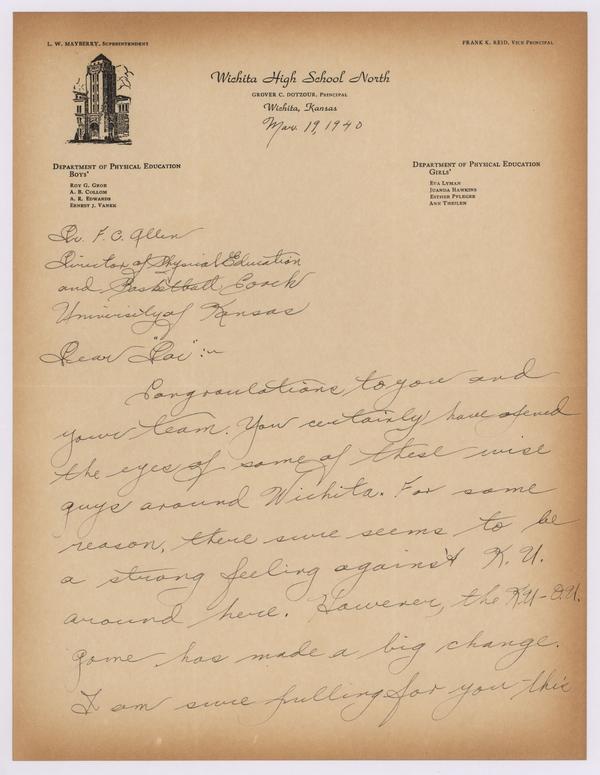 L. W. MAYBERRY, SUPERINTENDENT
FRANK K. REID, VICE PRINCIPAL
Wichita High School North
GROVER C. DOTZOUR, PRINCIPAL
Wichita, Kansas
Mar. 19, 1940
DEPARTMENT OF PHYSICAL EDUCATION
BOYS'
ROY G. GROB
A. B. COLLOM
A. R. EDWARDS
ERNEST J. VANEK
DEPARTMENT OF PHYSICAL EDUCATION
GIRLS'
EVA LYMAN
JUANDA HAWKINS
ESTHER PFLEGER
ANN THEILEN
Dr. F. C. Allen
Director of Physical Education
and Basketball Coach
University of Kansas
Dear "Doc":~
Congraulations to you and
your team. You certainly have opened
the eyes of some of these wise
guys around Wichita. For some
reason, there sure seems to be
a strong feeling against K. U.
around here. However, the K.U-O.U.
game has made a big change.
I am sure pulling for you this